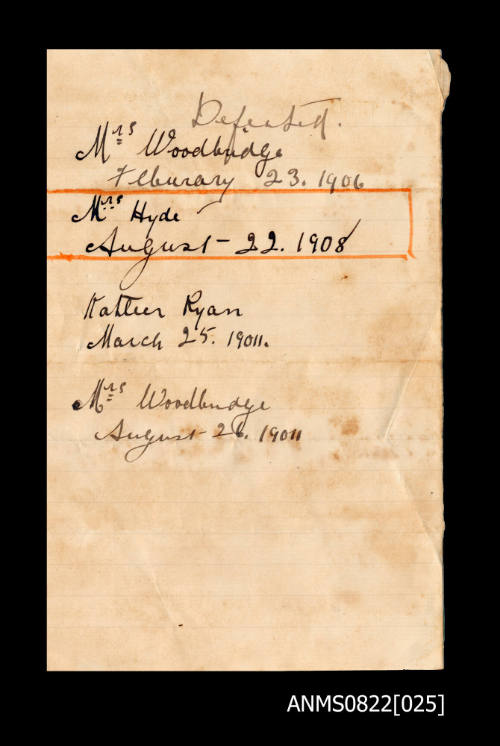 Defeated.
Mrs Woodbridge
Feburary 23. 1906
Mrs Hyde
August - 22. 1908
Kathleen Ryan
March 25. 19011.
Mrs Woodbridge
August 26. 19011
ANMS0822[025]